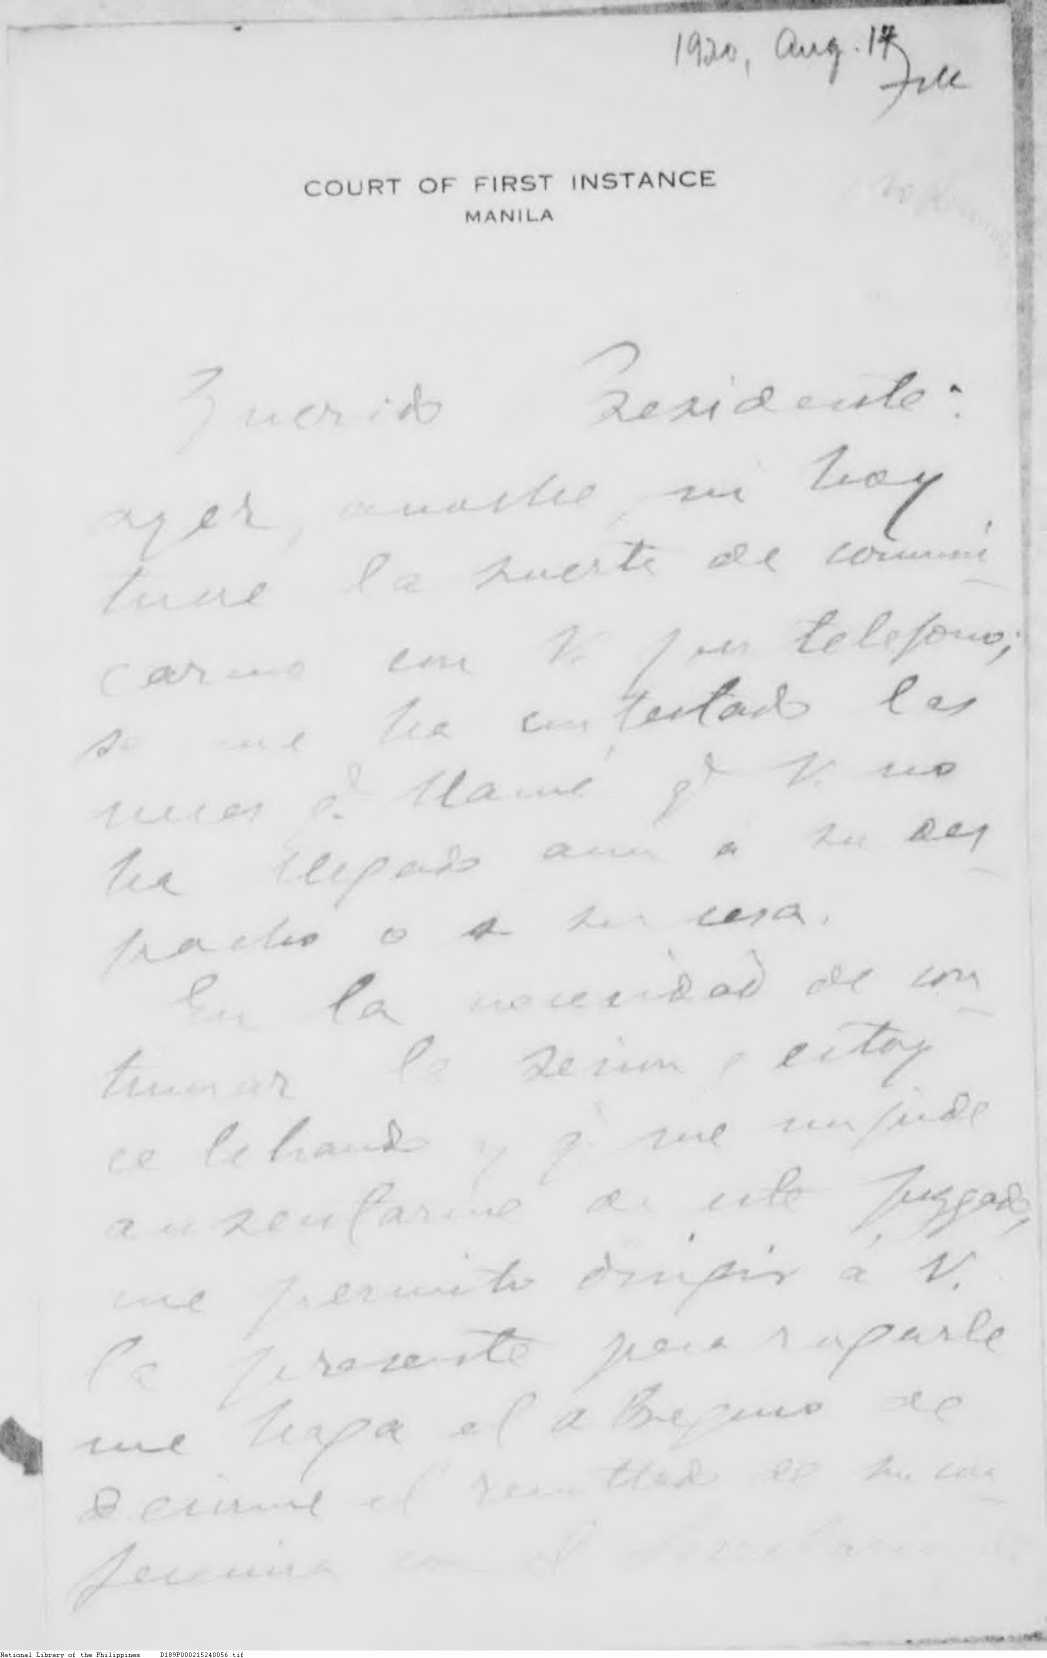 1920, Aug. 14
COURT OF FIRST INSTANCE
MANILA
Querido Presidente:
ayer, anoche, ni hoy
tuve la suerte de comuni
carme con V. por telefono;
se me ha contestado las
veces q. llamé q. V. no
ha llegado aun a su des
pacho o a su casa.
En la necesidad de con
tinuar la sesion q. estoy
celebrando y q. me impide
ausentarme de este juzgado,
me permito dirigir á V.
la presente para rogarle
me haga el obsequio de
decirme el resultado de su con
ferencia con el
National Library of the Philippines D189P000215240056.tif